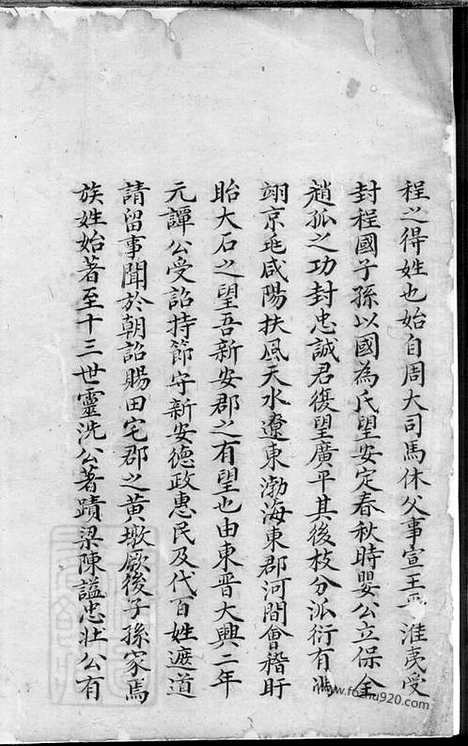 程之得姓也始自周大司馬休父事宣王平淮夷受
封程國子孫以國為氏望安定春秋時嬰公立保全
趙孤之功封忠誠君復望廣平其後枝分派衍有馮
翊京兆咸陽扶風天水遼東渤海東郡河間會稽盱
眙大石之望吾新安郡之有望也由東晉大興二年
元譚公受詔持節守新安德政惠民及代百姓遮道
請留事聞於朝詔賜田宅郡之黃墩厥後子孫家焉
族姓始著至十三世靈洗公著蹟梁陳謚忠壯公有
www.foshu920.com